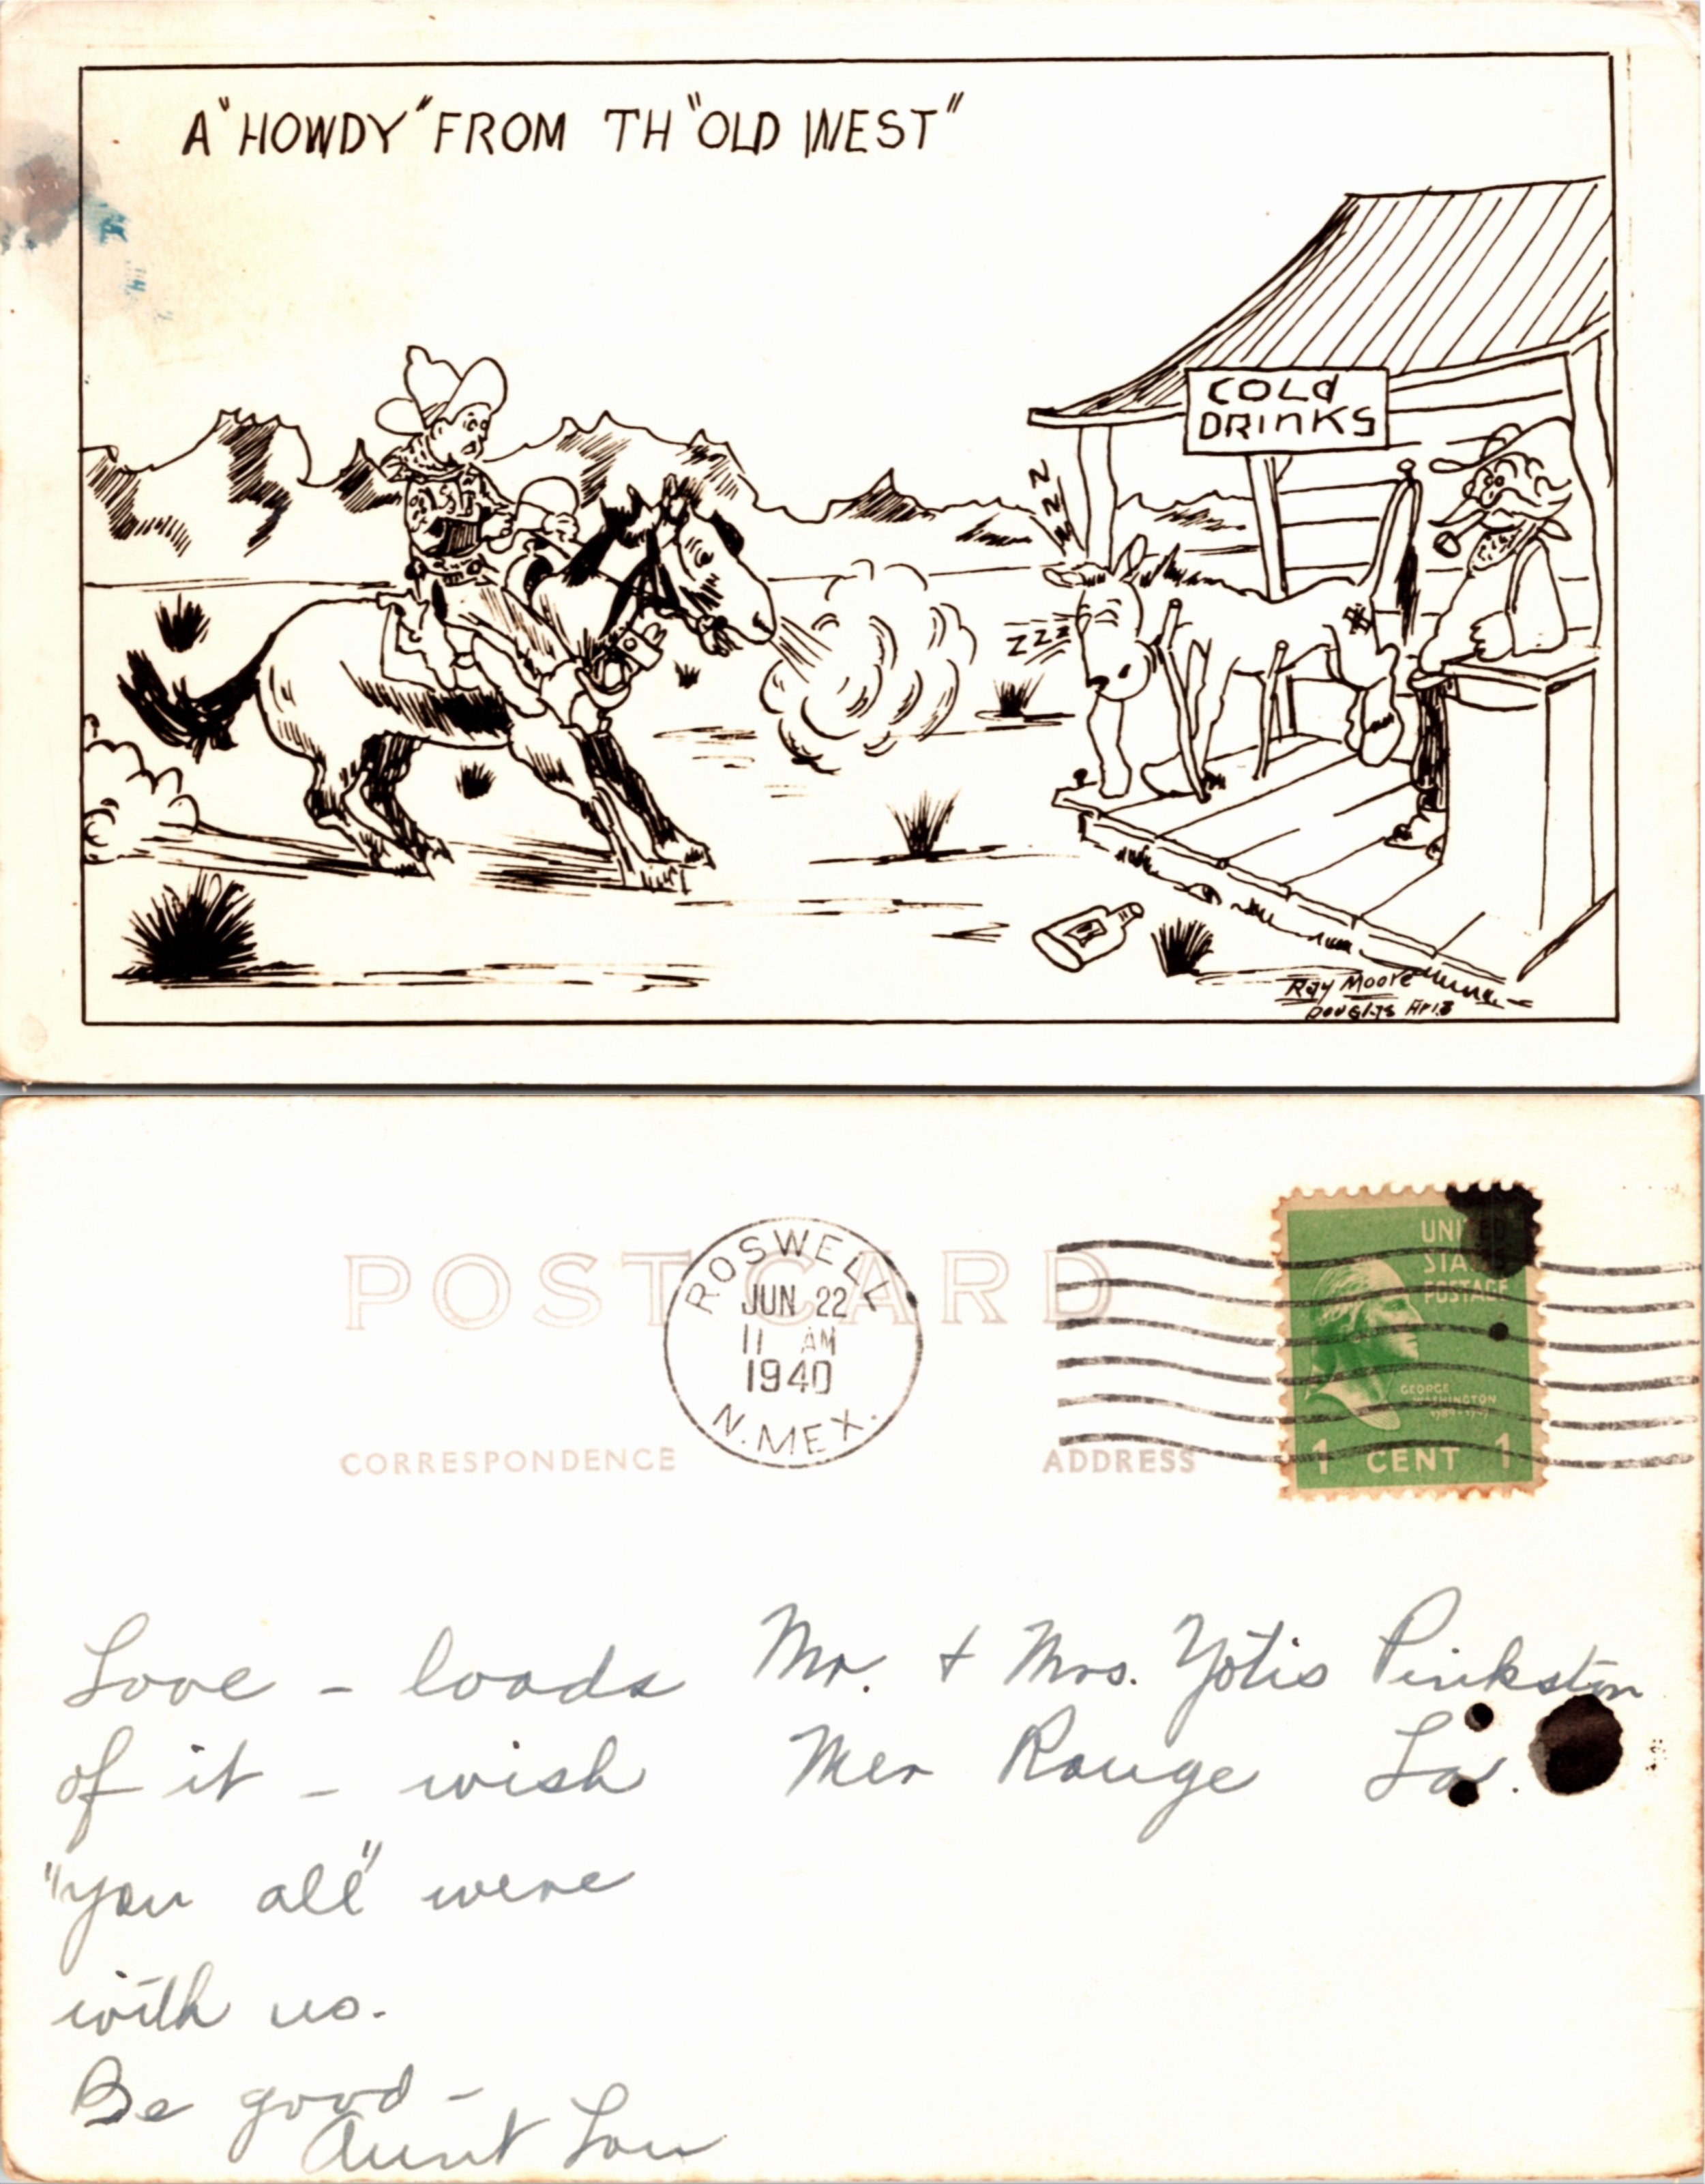 A "HOWDY" FROM TH "OLD WEST"
COLd
DRINKS
ZZZ
ZZZ
Ray Moore
Douglas Ariz
POST CARD
ROSWELL
JUN 22
11 AM
1940
N. MEX.
UNITED
STATES
POSTAGE
GEORGE
WASHINGTON
1789-1797
1 CENT 1
CORRESPONDENCE
ADDRESS
Love - loads
of it - wish
"you all" were
with us.
Be good -
Aunt Lou
Mr. + Mrs. Yotis Pinkston
Mer Rouge La.